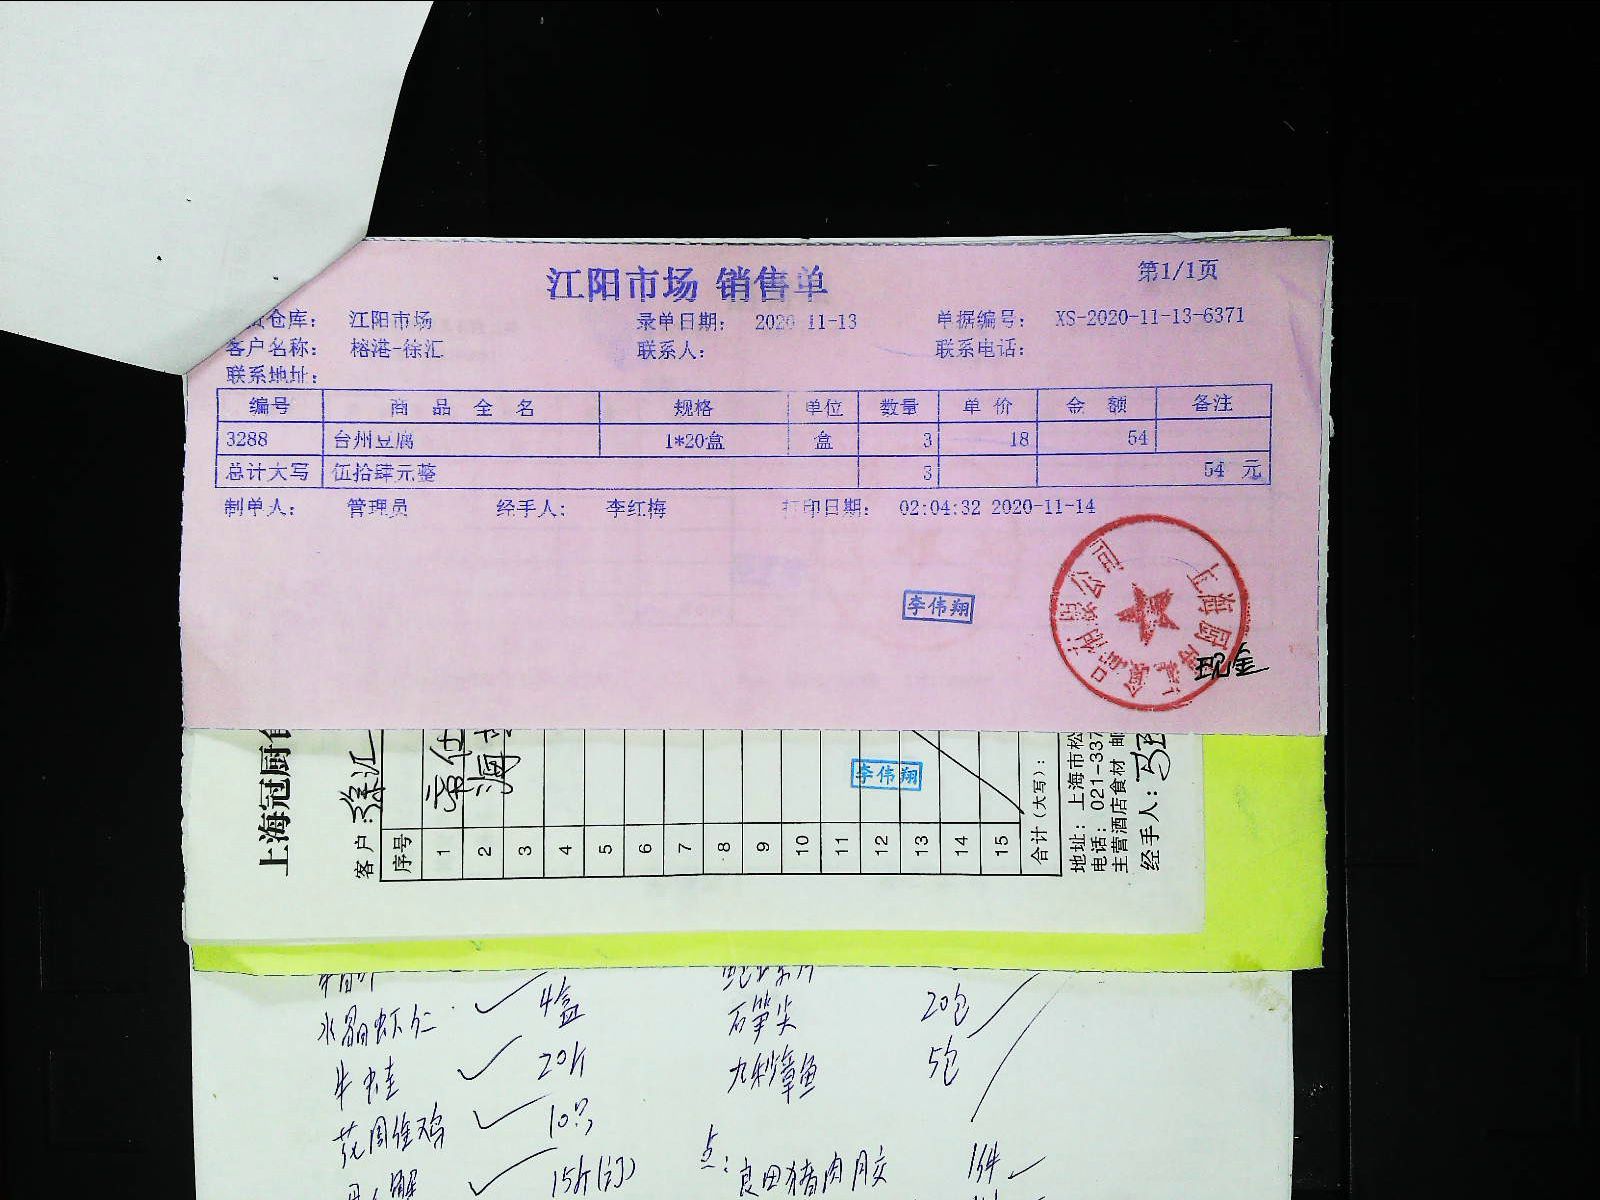 江阳市场 销售单
第1/1页
仓库： 江阳市场 录单日期： 2020-11-13 单据编号： XS-2020-11-13-6371
客户名称： 榕港-徐汇 联系人： 联系电话：
联系地址：
编号 商品全名 规格 单位 数量 单价 金额 备注
3288 台州豆腐 1*20盒 盒 3 18 54
总计大写 伍拾肆元整 3 54 元
制单人： 管理员 经手人： 李红梅 打印日期： 02:04:32 2020-11-14
李伟翔
上海冠厨
客户：徐汇
序号 1 2 3 4 5 6 7 8 9 10 11 12 13 14 15
李伟翔
合计（大写）：
地址：上海市松
电话：021-337
主营酒店食材 邮
经手人：
水晶虾仁 4盒 石笋尖 20包
牛蛙 20斤 九秒章鱼 5包
花周维鸡 10只
15斤(订) 点：良田猪肉月交 1件